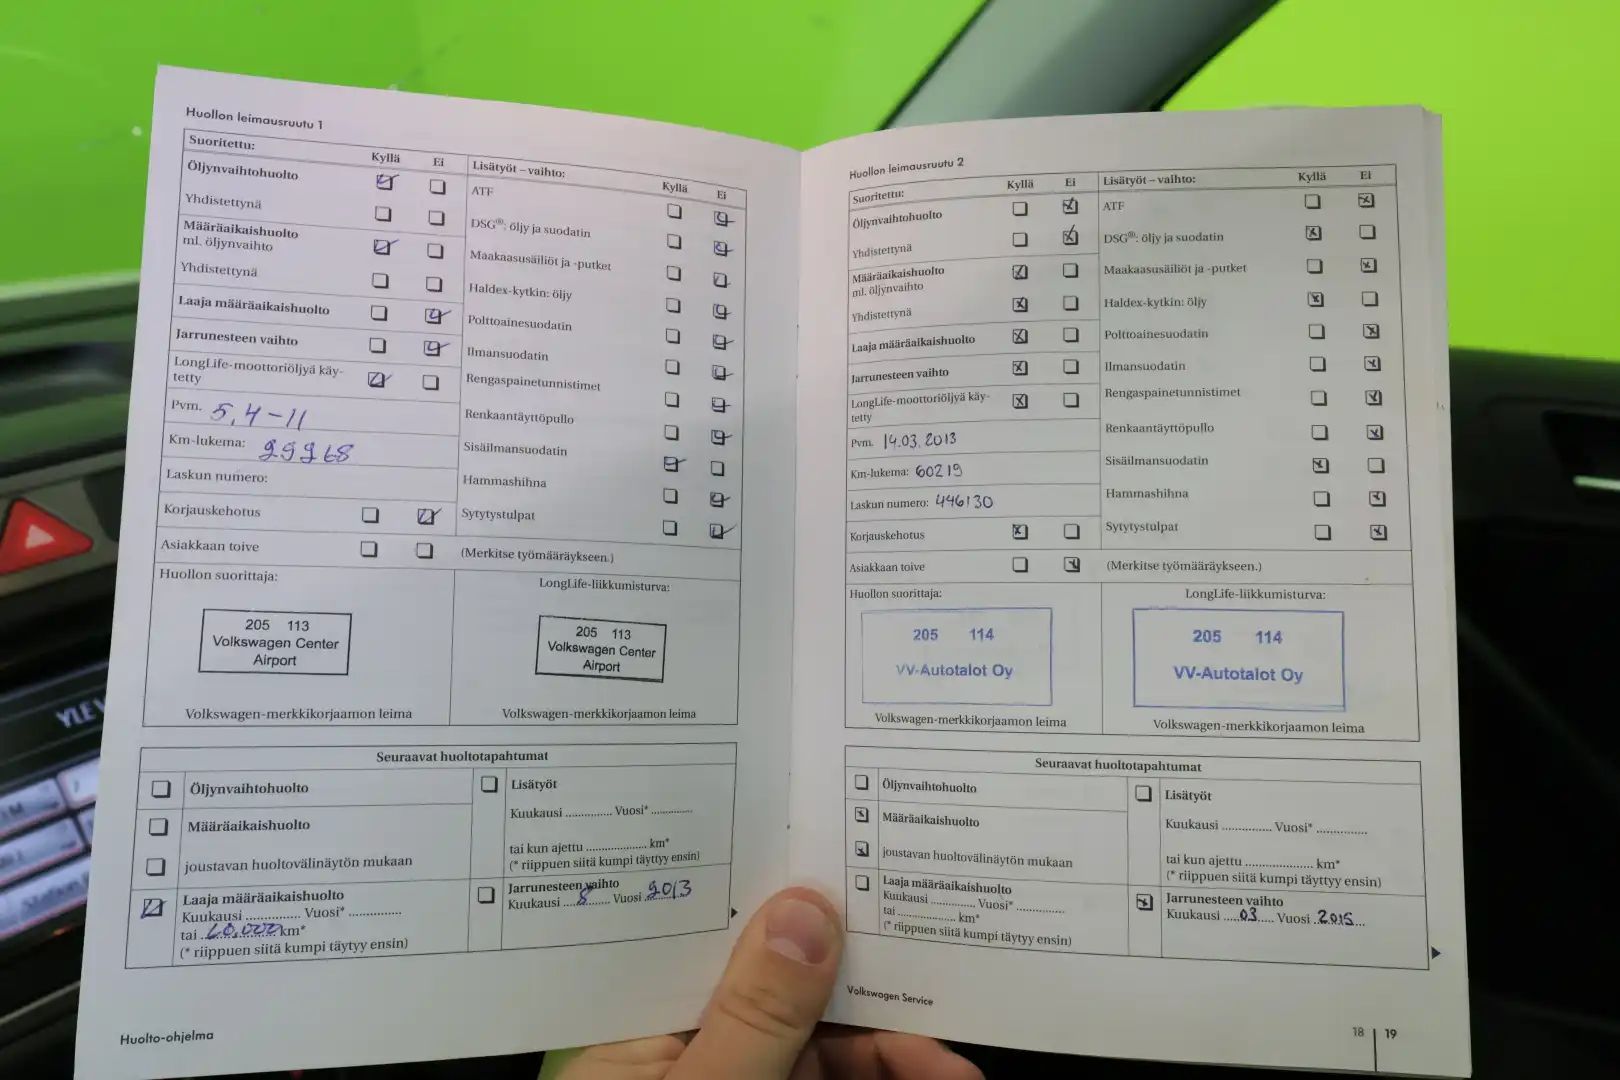 Huollon leimausruutu 1
Suoritettu: Kyllä Ei
Öljynvaihtohuolto
Yhdistettynä
Määräaikaishuolto
ml. öljynvaihto
Yhdistettynä
Laaja määräaikaishuolto
Jarrunesteen vaihto
LongLife-moottoriöljyä käy-
tetty
Pvm. 5,4-11
Km-lukema: 29968
Laskun numero:
Korjauskehotus
Asiakkaan toive
Lisätyöt – vaihto: Kyllä Ei
ATF
DSG®: öljy ja suodatin
Maakaasusäiliöt ja -putket
Haldex-kytkin: öljy
Polttoainesuodatin
Ilmansuodatin
Rengaspainetunnistimet
Renkaantäyttöpullo
Sisäilmansuodatin
Hammashihna
Sytytystulpat
(Merkitse työmääräykseen.)
Huollon suorittaja:
205 113
Volkswagen Center
Airport
Volkswagen-merkkikorjaamon leima
LongLife-liikkumisturva:
205 113
Volkswagen Center
Airport
Volkswagen-merkkikorjaamon leima
Seuraavat huoltotapahtumat
Öljynvaihtohuolto
Määräaikaishuolto
joustavan huoltovälinäytön mukaan
Laaja määräaikaishuolto
Kuukausi ............... Vuosi* ...............
tai 60.000 km*
(* riippuen siitä kumpi täytyy ensin)
Lisätyöt
Kuukausi ............... Vuosi* ...............
tai kun ajettu .................... km*
(* riippuen siitä kumpi täyttyy ensin)
Jarrunesteen vaihto
Kuukausi 8 Vuosi 2013
Huolto-ohjelma
Huollon leimausruutu 2
Suoritettu: Kyllä Ei
Öljynvaihtohuolto
Yhdistettynä
Määräaikaishuolto
ml. öljynvaihto
Yhdistettynä
Laaja määräaikaishuolto
Jarrunesteen vaihto
LongLife-moottoriöljyä käy-
tetty
Pvm. 14.03.2013
Km-lukema: 60219
Laskun numero: 446130
Korjauskehotus
Asiakkaan toive
Lisätyöt – vaihto: Kyllä Ei
ATF
DSG®: öljy ja suodatin
Maakaasusäiliöt ja -putket
Haldex-kytkin: öljy
Polttoainesuodatin
Ilmansuodatin
Rengaspainetunnistimet
Renkaantäyttöpullo
Sisäilmansuodatin
Hammashihna
Sytytystulpat
(Merkitse työmääräykseen.)
Huollon suorittaja:
205 114
VV-Autotalot Oy
Volkswagen-merkkikorjaamon leima
LongLife-liikkumisturva:
205 114
VV-Autotalot Oy
Volkswagen-merkkikorjaamon leima
Seuraavat huoltotapahtumat
Öljynvaihtohuolto
Määräaikaishuolto
joustavan huoltovälinäytön mukaan
Laaja määräaikaishuolto
Kuukausi ............... Vuosi* ...............
tai .................... km*
(* riippuen siitä kumpi täytyy ensin)
Lisätyöt
Kuukausi ............... Vuosi* ...............
tai kun ajettu .................... km*
(* riippuen siitä kumpi täyttyy ensin)
Jarrunesteen vaihto
Kuukausi 03 Vuosi 2015
Volkswagen Service
18 | 19